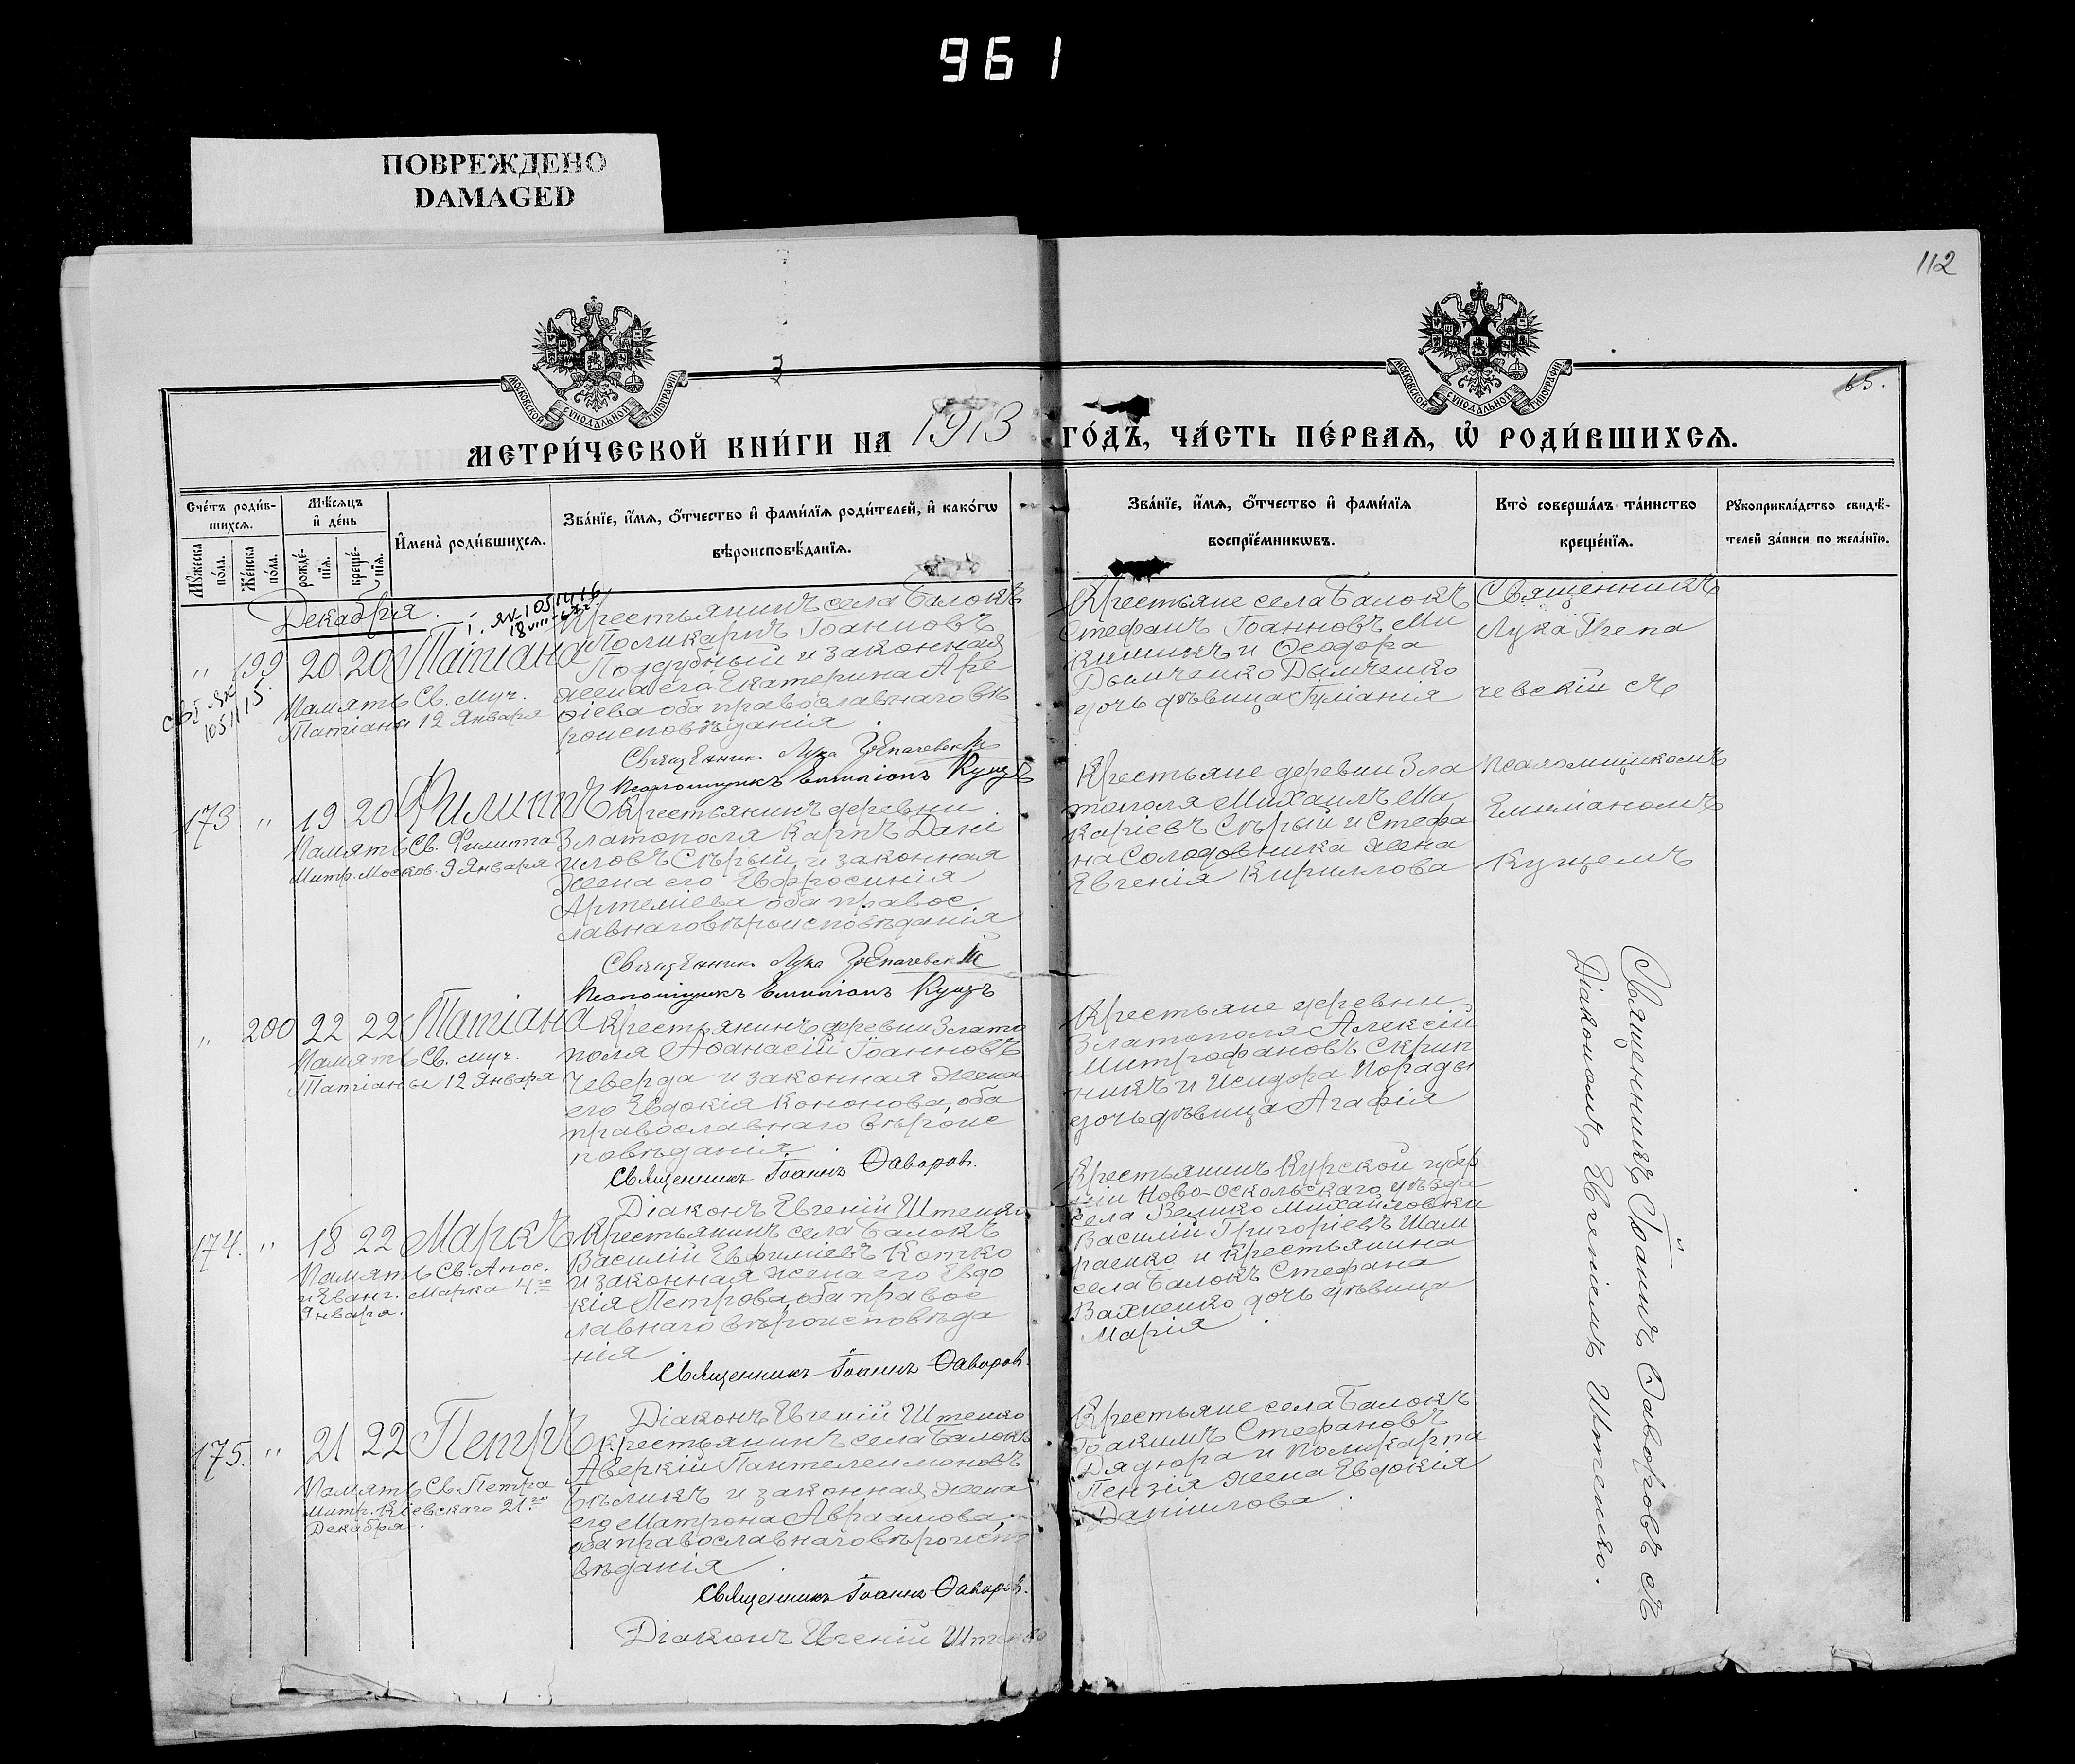 961
ПОВРЕЖДЕНО
DAMAGED
112
65.
МОСКОВСКОЙ СѴНОДАЛЬНОЙ ТИПОГРАФІИ
МОСКОВСКОЙ СѴНОДАЛЬНОЙ ТИПОГРАФІИ
МЕТРИ́ЧЕСКОЙ КНИ́ГИ НА 1913 ГО́ДЪ, ЧА́СТЬ ПЕ́РВАѦ, Ѡ҆ РОДИ́ВШИХСѦ.
Сче́тъ роди́в-
шихсѧ.
Мꙋ́жеска
по́ла.
Же́нска
по́ла.
Мѣ́сѧцъ
и҆ де́нь
рожде́-
нїѧ.
креще́-
нїѧ.
И҆мена̀ роди́вшихсѧ.
Зва́нїе, и҆́мѧ, ѻ҆́тчество и҆ фами́лїѧ роди́телей, и҆ како́гѡ
вѣроисповѣ́данїѧ.
Зва́нїе, и҆́мѧ, ѻ҆́тчество и҆ фами́лїѧ
воспрїе́мникѡвъ.
Кто̀ соверша́лъ та́инство
креще́нїѧ.
Рꙋкоприкла́дство свидѣ́-
телей за́писи по жела́нїю.
Декабря.
" 199 20 20 Татіана
Память Св. муч.
Татіаны 12 Января
Крестьянинъ села Балокъ
Поликарпъ Іоанновъ
Поддубный и законная
жена его Екатерина Аре
ѳіева оба православнаго вѣ
роисповѣданія
Священник Лука
Псаломщикъ Емиліанъ Кущъ
Крестьяне села Балокъ
Стефанъ Іоанновъ Ми
и Ѳеодора
Дымченко
дочь дѣвица Іуліанія
Священникъ
Лука
съ
173 " 19 20 Филиппъ
Память Св. Филиппа
Митр. Москов. 9 Января
Крестьянинъ деревни
Златополя Карпъ Дані
иловъ Сѣрый и законная
жена его Евфросинія
Артеміева оба правос
лавнаго вѣроисповѣданія
Священник Лука
Псаломщикъ Емиліанъ Кущъ
Крестьяне деревни Зла
тополя Михаилъ Ма
каріевъ Сѣрый и Стефа
на Солодовника жена
Евгенія Кириллова
Псаломщикомъ
Емиліаномъ
Кущемъ
" 200 22 22 Татіана
Память Св. муч.
Татіаны 12 Января
Крестьянинъ деревни Злато
поля Аѳанасій Іоанновъ
Чеверда и законная жена
его Евдокія Кононова, оба
православнаго вѣроис
повѣданія
Священникъ Іоаннъ Ѳаворовъ.
Діаконъ Евгеній Штепко
Крестьяне деревни
Златополя Алексій
Митрофановъ Скрип
никъ и Исидора
дочь дѣвица Агафія
174. " 18 22 Маркъ
Память Св. Апос.
и Еванг. Марка 4го
Января.
Крестьянинъ села Балокъ
Василій Евфиміевъ Котко
и законная жена его Евдо
кія Петрова, оба правос
лавнаго вѣроисповѣда
нія
Священникъ Іоаннъ Ѳаворовъ.
Діаконъ Евгеній Штепко
Крестьянинъ Курской губер
ніи Ново-Оскольскаго уѣзда
села Велико Михайловки
Василій Григоріевъ Шап
раенко и крестьянина
села Балокъ Стефана
Вахненко дочь дѣвица
Марія
175. " 21 22 Петръ
Память Св. Петра
Митр. Кіевскаго 21го
Декабря.
Крестьянинъ села Балокъ
Аверкій Пантелеимоновъ
Бѣликъ и законная жена
его Матрона Авраамова,
оба православнаго вѣроиспо
вѣданія
Священникъ Іоаннъ Ѳаворовъ.
Діаконъ Евгеній Штепко
Крестьяне села Балокъ
Іоакимъ Стефановъ
Дядюра и Поликарпа
Пензія жена Евдокія
Даніилова.
Священникъ Іоаннъ Ѳаворовъ съ
Діакономъ Евгеніемъ Штепко.